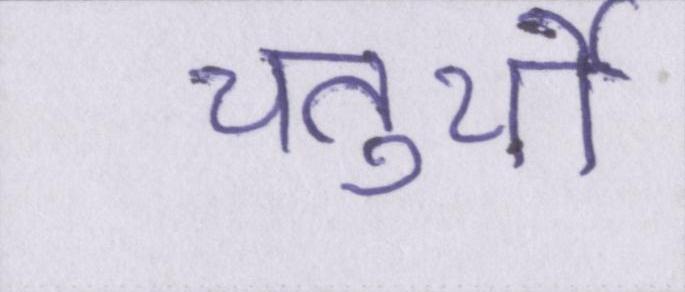 चतुर्थी